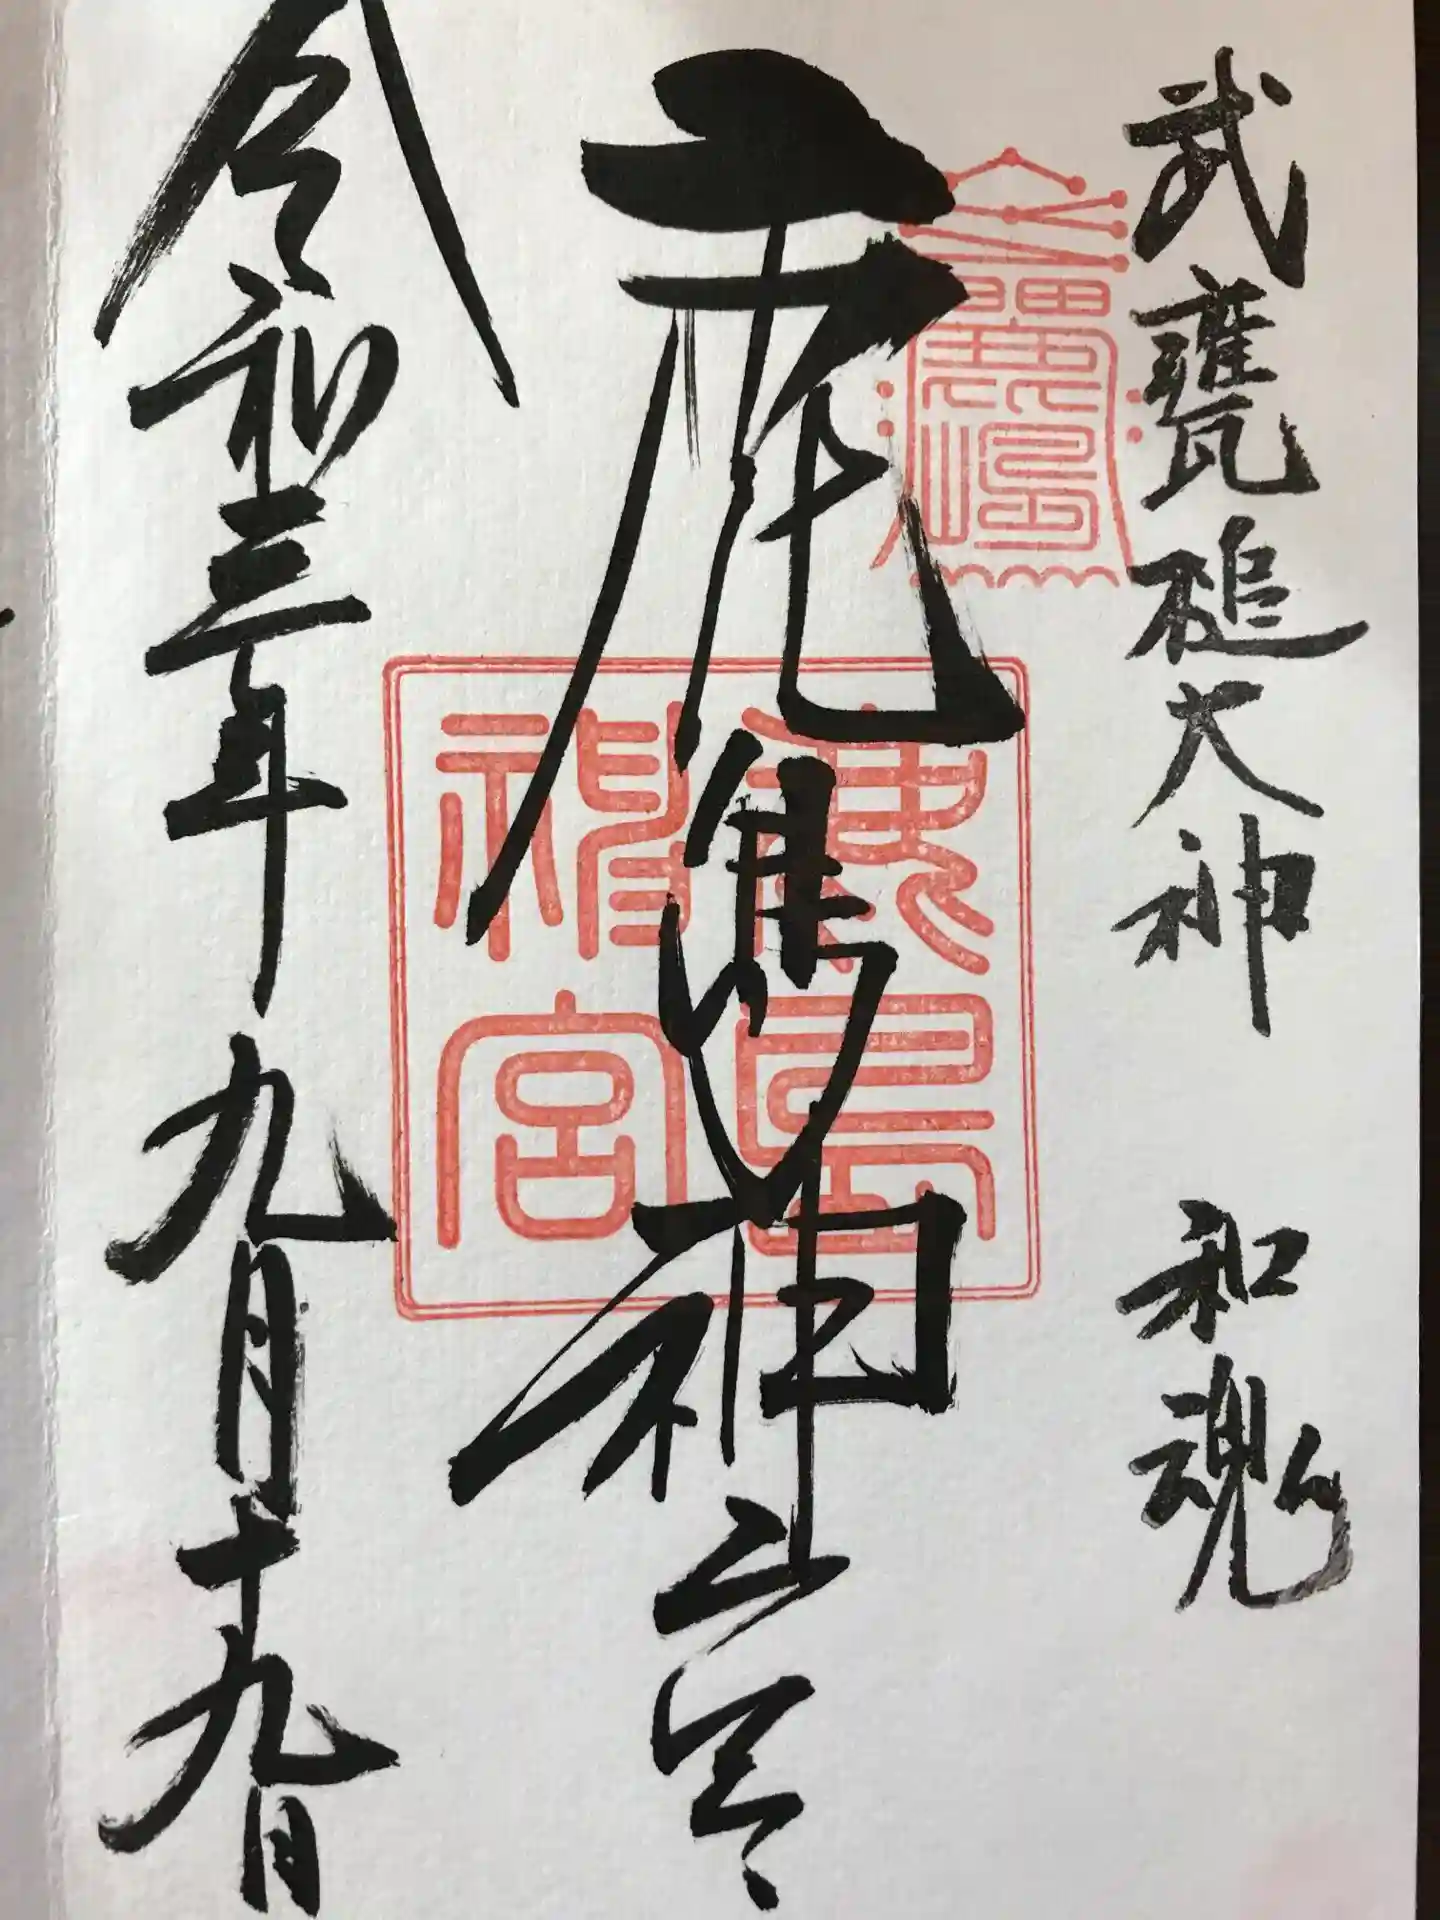 武甕槌大神 和魂
鹿島神宮
鹿島
神宮
令和三年九月十九日